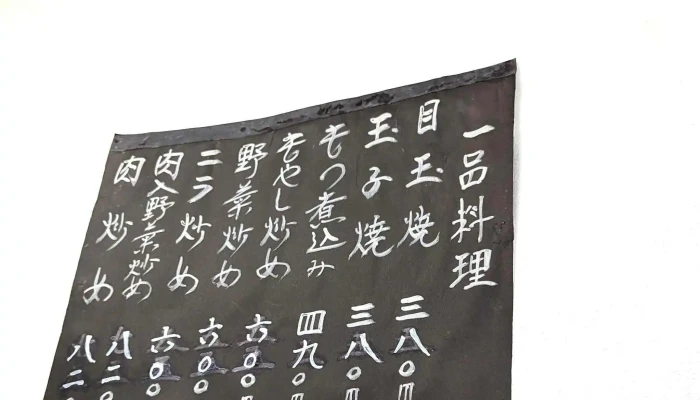 一品料理
目玉焼 三八〇円
玉子焼 三八〇円
もつ煮込み 四九〇円
もやし炒め 六〇〇円
野菜炒め 六〇〇
ニラ炒め 六〇〇
肉入野菜炒め 八二〇
肉炒め 八二